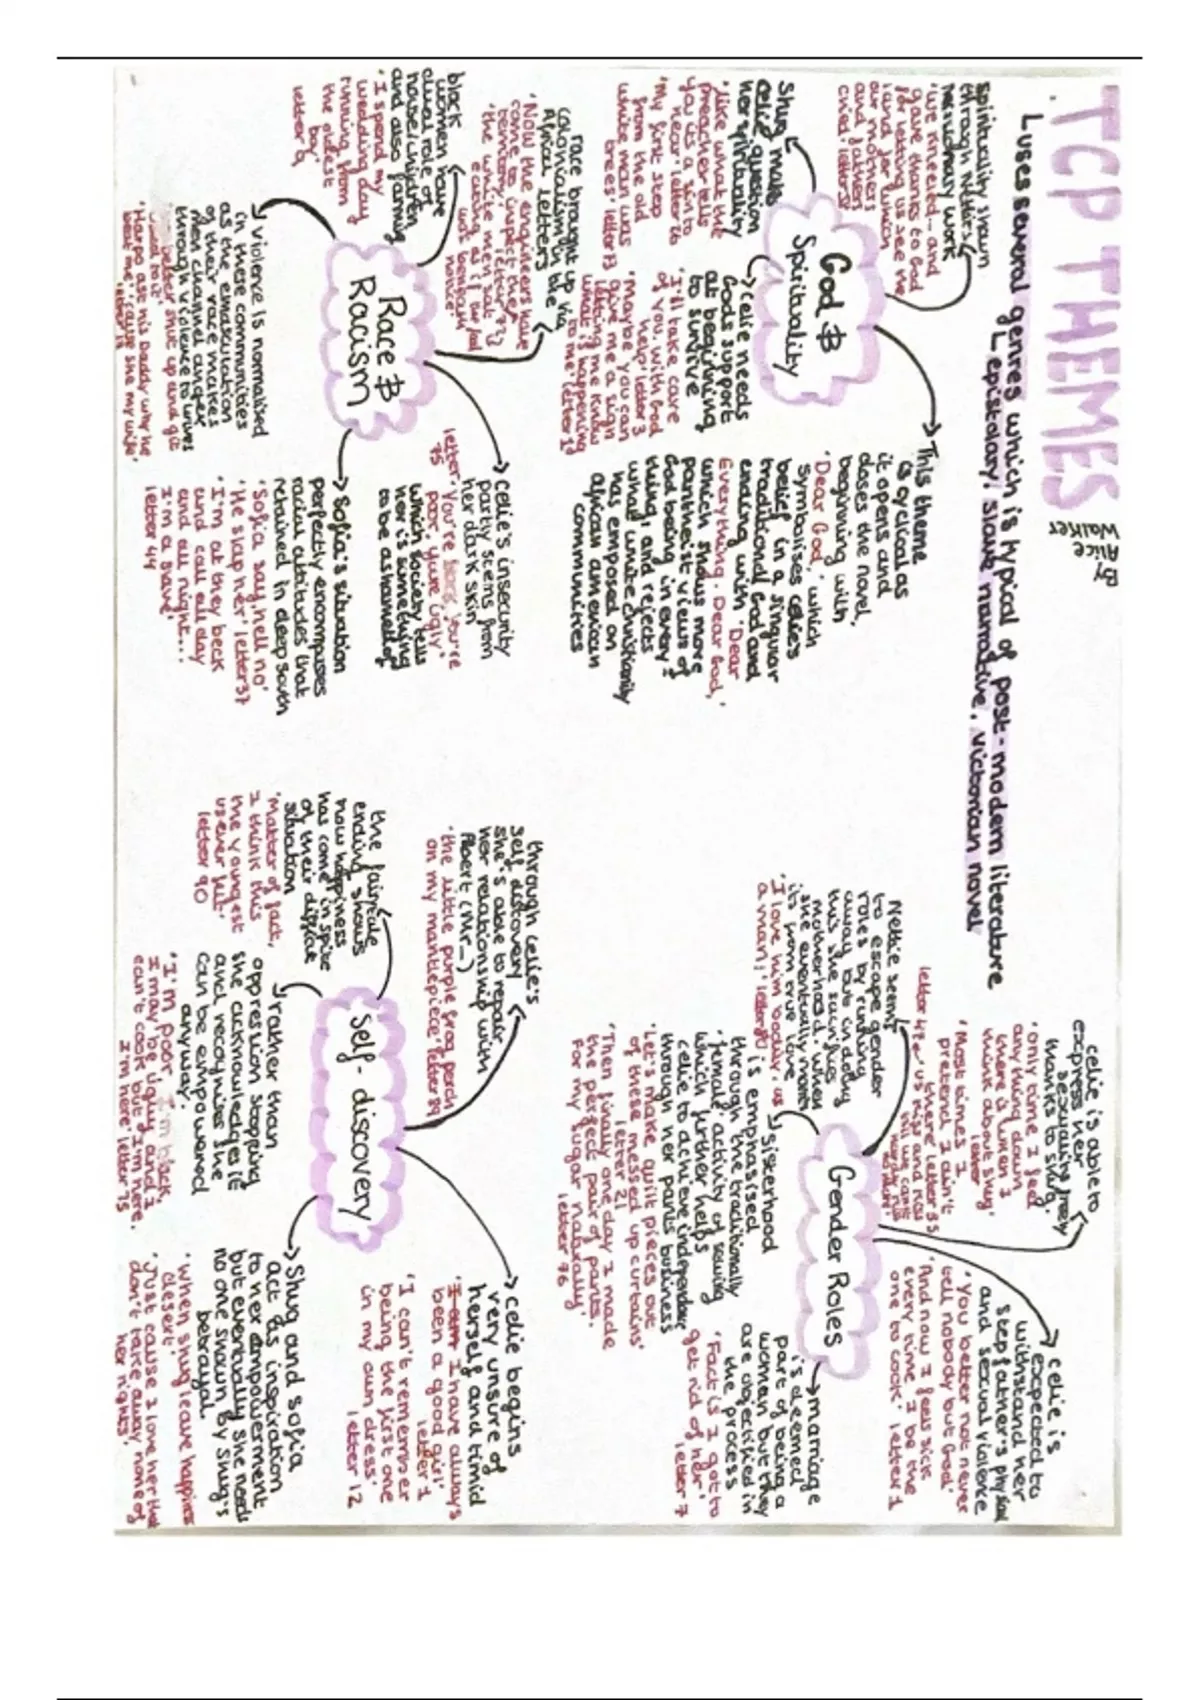 TCP THEMES
BY
Alice
Walker
uses several genres which is typical of post-modern literature
epistolary, slave narrative, victorian novel
God &
Spirituality
spirituality shown
through Nettie's
missionary work
'we kneeled - and
gave thanks to God
for letting us see the
land for which
our mothers
and fathers
cried' letter
Shug makes
celie question
her spirituality
'like what the
preacher tells
you its a sin to
hear' letter 26
'My first step
from the old
white man was
trees' letter 73
celie needs
Gods support
at beginning
to survive
'I'll take care
of you. With God
help' letter 3
'Maybe you can
give me a sign
letting me know
what is happening
to me' letter 1
This theme
is cyclical as
it opens and
closes the novel,
beginning with
'Dear God,' which
symbolises celie's
belief in a singular
traditional God and
ending with 'Dear
Everything. Dear God,'
which shows more
pantheist views of
God being in every-
thing, and rejects
what white christianity
has emposed on
african american
communities
Race &
Racism
race brought up via
colonialism in the
Africa letters
'Now the engineers have
come to inspect the
territory,' letter
'the white men sat
eating as if the food
was beneath
notice'
black
women have
dual role of
house/children
and also farming
'I spend my
wedding day
running from
the oldest
boy'
letter 9
violence is normalised
in these communities
as the emasculation
of their race makes
men channel anger
through violence to wives
better shut up and git
used to it'
'Harpo ast his Daddy why he
beat me' 'cause she my wife'
letter 13
celie's insecurity
partly stems from
her dark skin
'You're black, You're
poor, youre ugly'
letter 75
which society tells
her is something
to be ashamed of
Sofia's situation
perfectly encompases
racial attitudes that
retained in deep south
'Sofia say, hell no'
'He slap her' letter 37
'I'm at they beck
and call all day
and all night...
I'm a slave'
letter 44
Gender Roles
celie is able to
express her
sexuality freely
thanks to Shug.
'only time I feel
anything down
there is when I
think about Shug'
letter
'Most times I
pretend I ain't
there' letter 35
'us kiss and kiss
till we can't
hardly kiss
no more'
letter 47
Nettie seems
to escape gender
roles by running
away but in doing
this she sacrifices
motherhood, when
she eventually marries
its from true love
'I love him bodily, as
a man,' letter
celie is
expected to
withstand her
stepfather's physical
and sexual violence
'You better not never
tell nobody but God'
'And now I feels sick
every time I be the
one to cook' letter 1
sisterhood
is emphasised
through the traditionally
'female' activity of sewing
which further helps
celie to achieve independence
through her pants business
'Let's make quilt pieces out
of these messed up curtains'
letter 21
'Then finally one day I made
the perfect pair of pants.
For my sugar naturally'
letter 76
marriage
is deemed
part of being a
woman but they
are objectified in
the process
'Fact is I got to
get rid of her'
letter 7
Self-discovery
through celie's
self discovery
she's able to repair
her relationship with
Albert (Mr_)
'the little purple frog perch
on my mantlepiece' letter 89
the fairytale
ending shows
how happiness
has come in spite
of their difficult
situation
'Matter of fact,
I think this
the youngest
us ever felt'
letter 90
rather than
oppression stopping
she acknowledges it
and recognises she
can be empowered
anyway.
'I'm poor, I'm black,
I may be ugly and I
can't cook but I'm here.
I'm here' letter 75
celie begins
very unsure of
herself and timid
'I am I have always
been a good girl'
letter 1
'I can't remember
being the first one
in my own dress'
letter 12
Shug and sofia
act as inspiration
to her empowerment
but eventually she needs
no one shown by Shug's
betrayal.
'When Shug leave happiness
desert'
'Just cause I love her that
don't take away none of
her rights'.